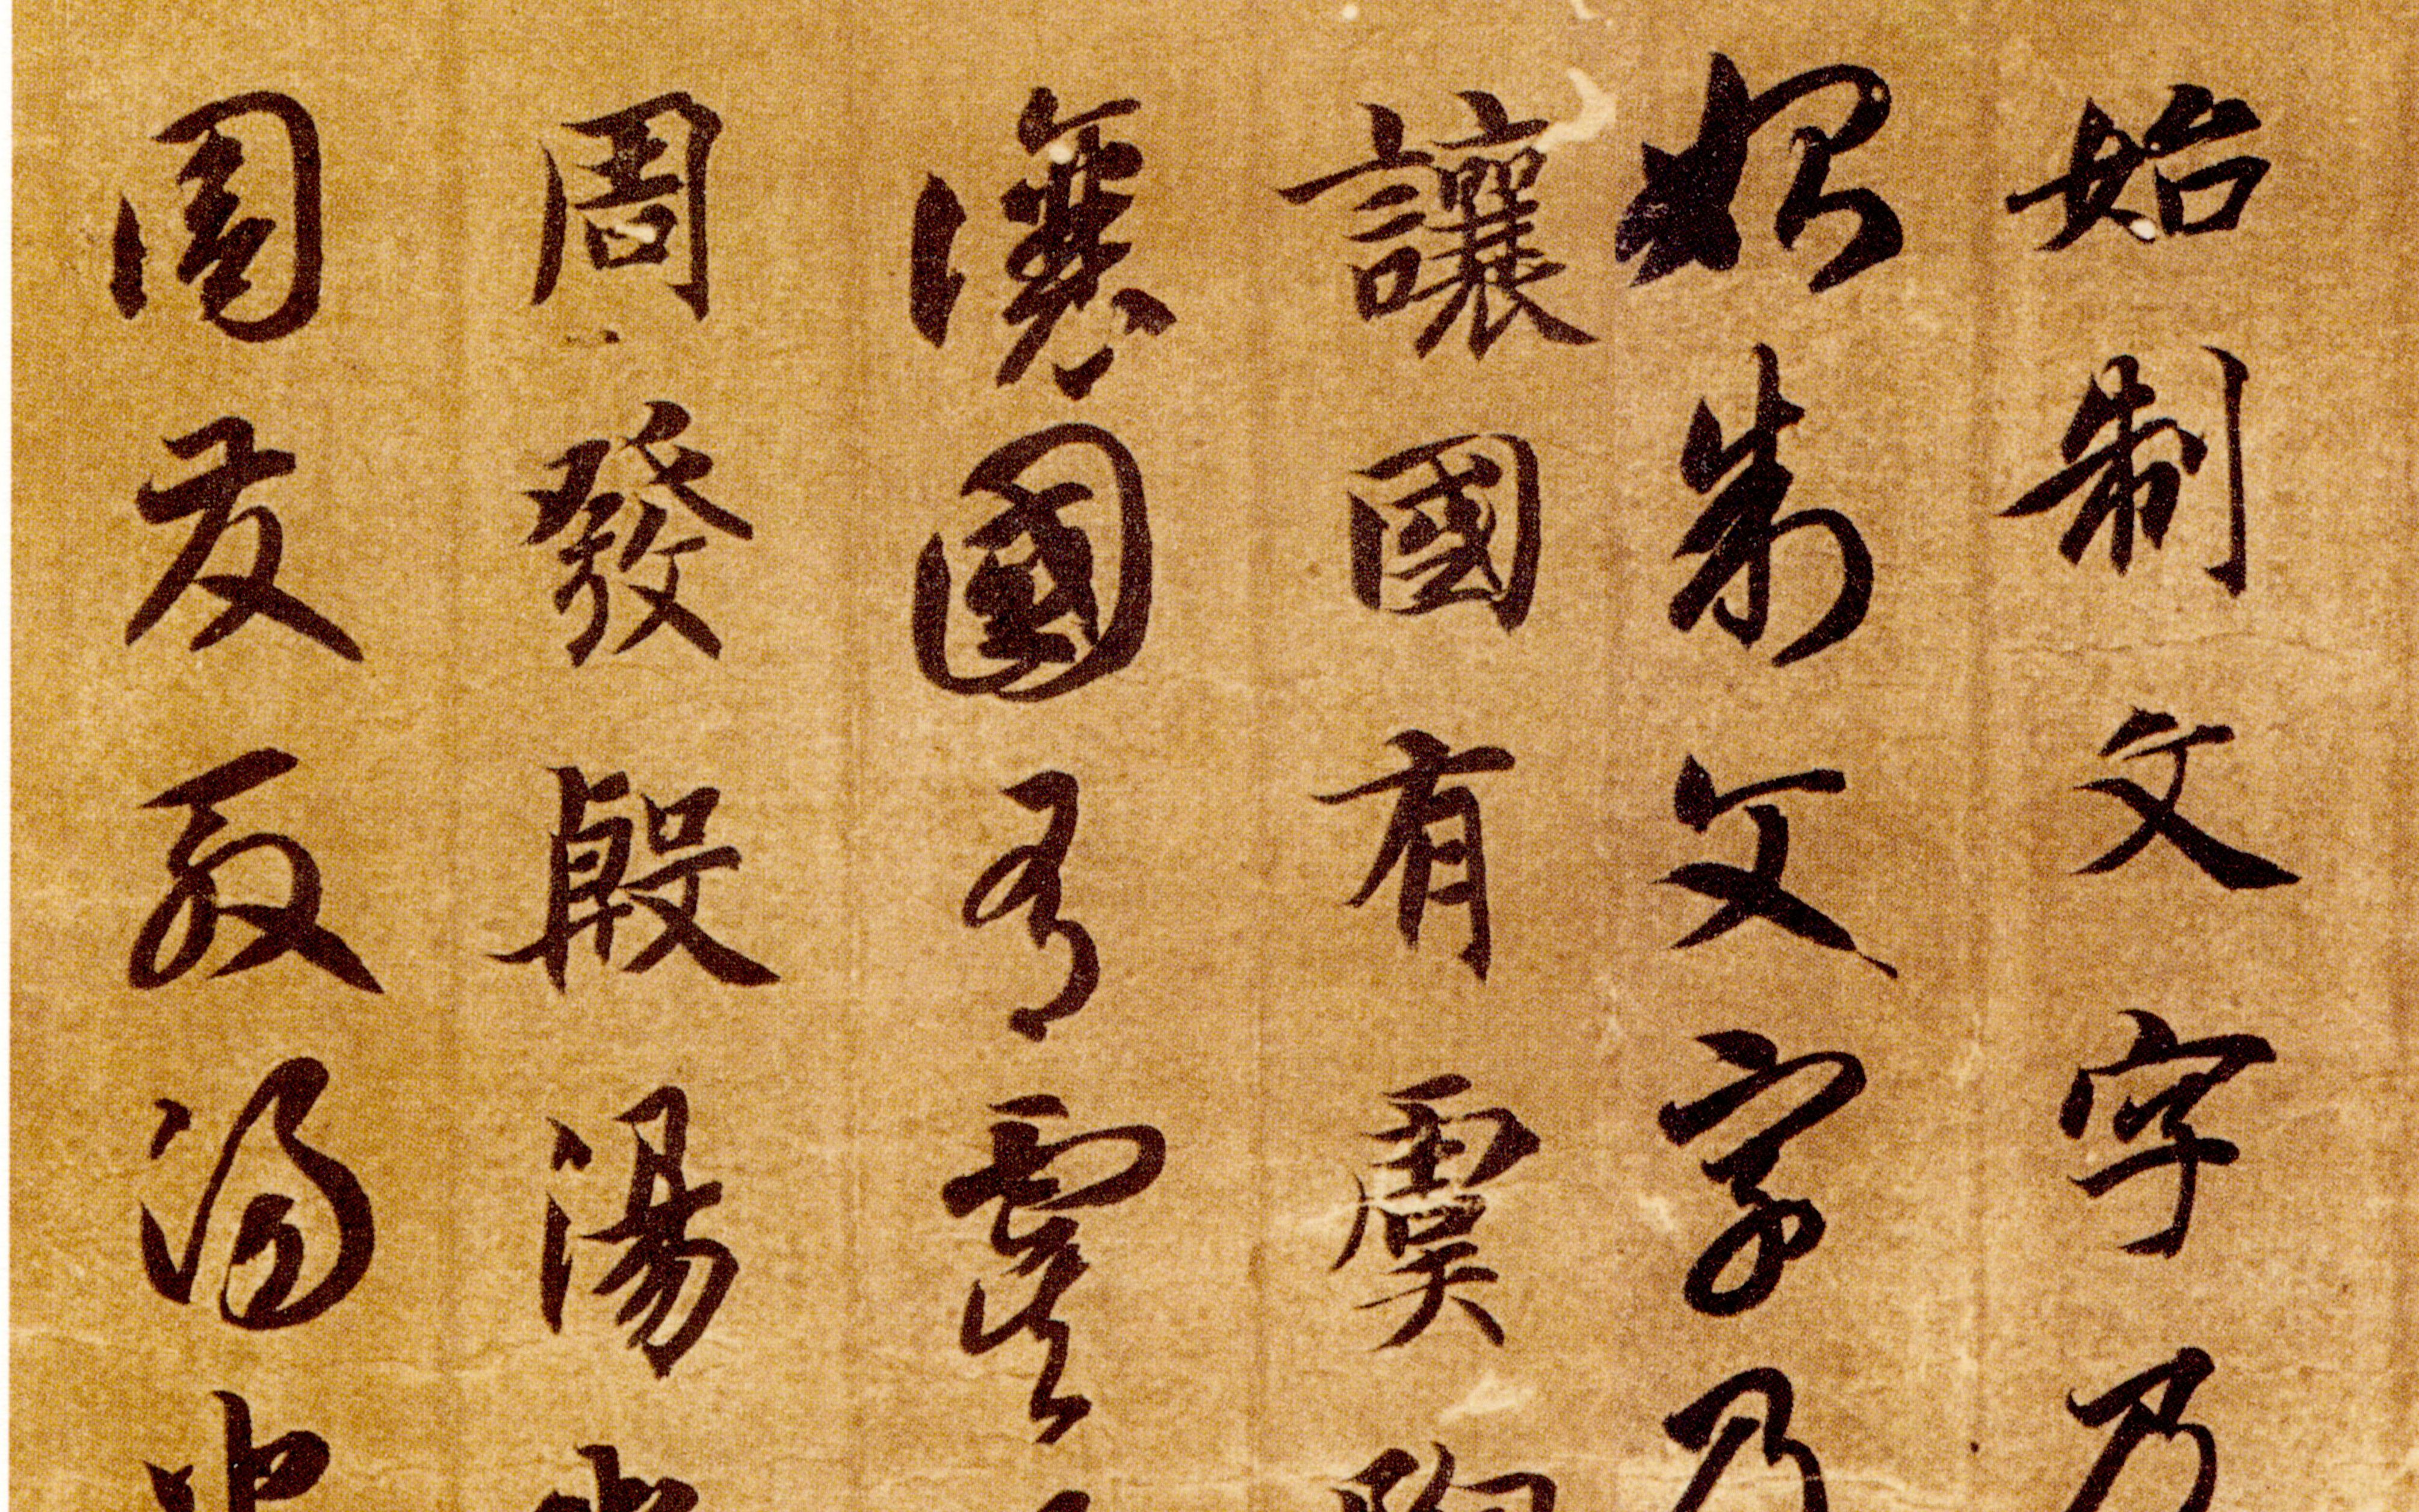 始制文字乃
始制文字乃
讓國有虞陶
讓國有虞
周發殷湯坐
周發殷湯坐